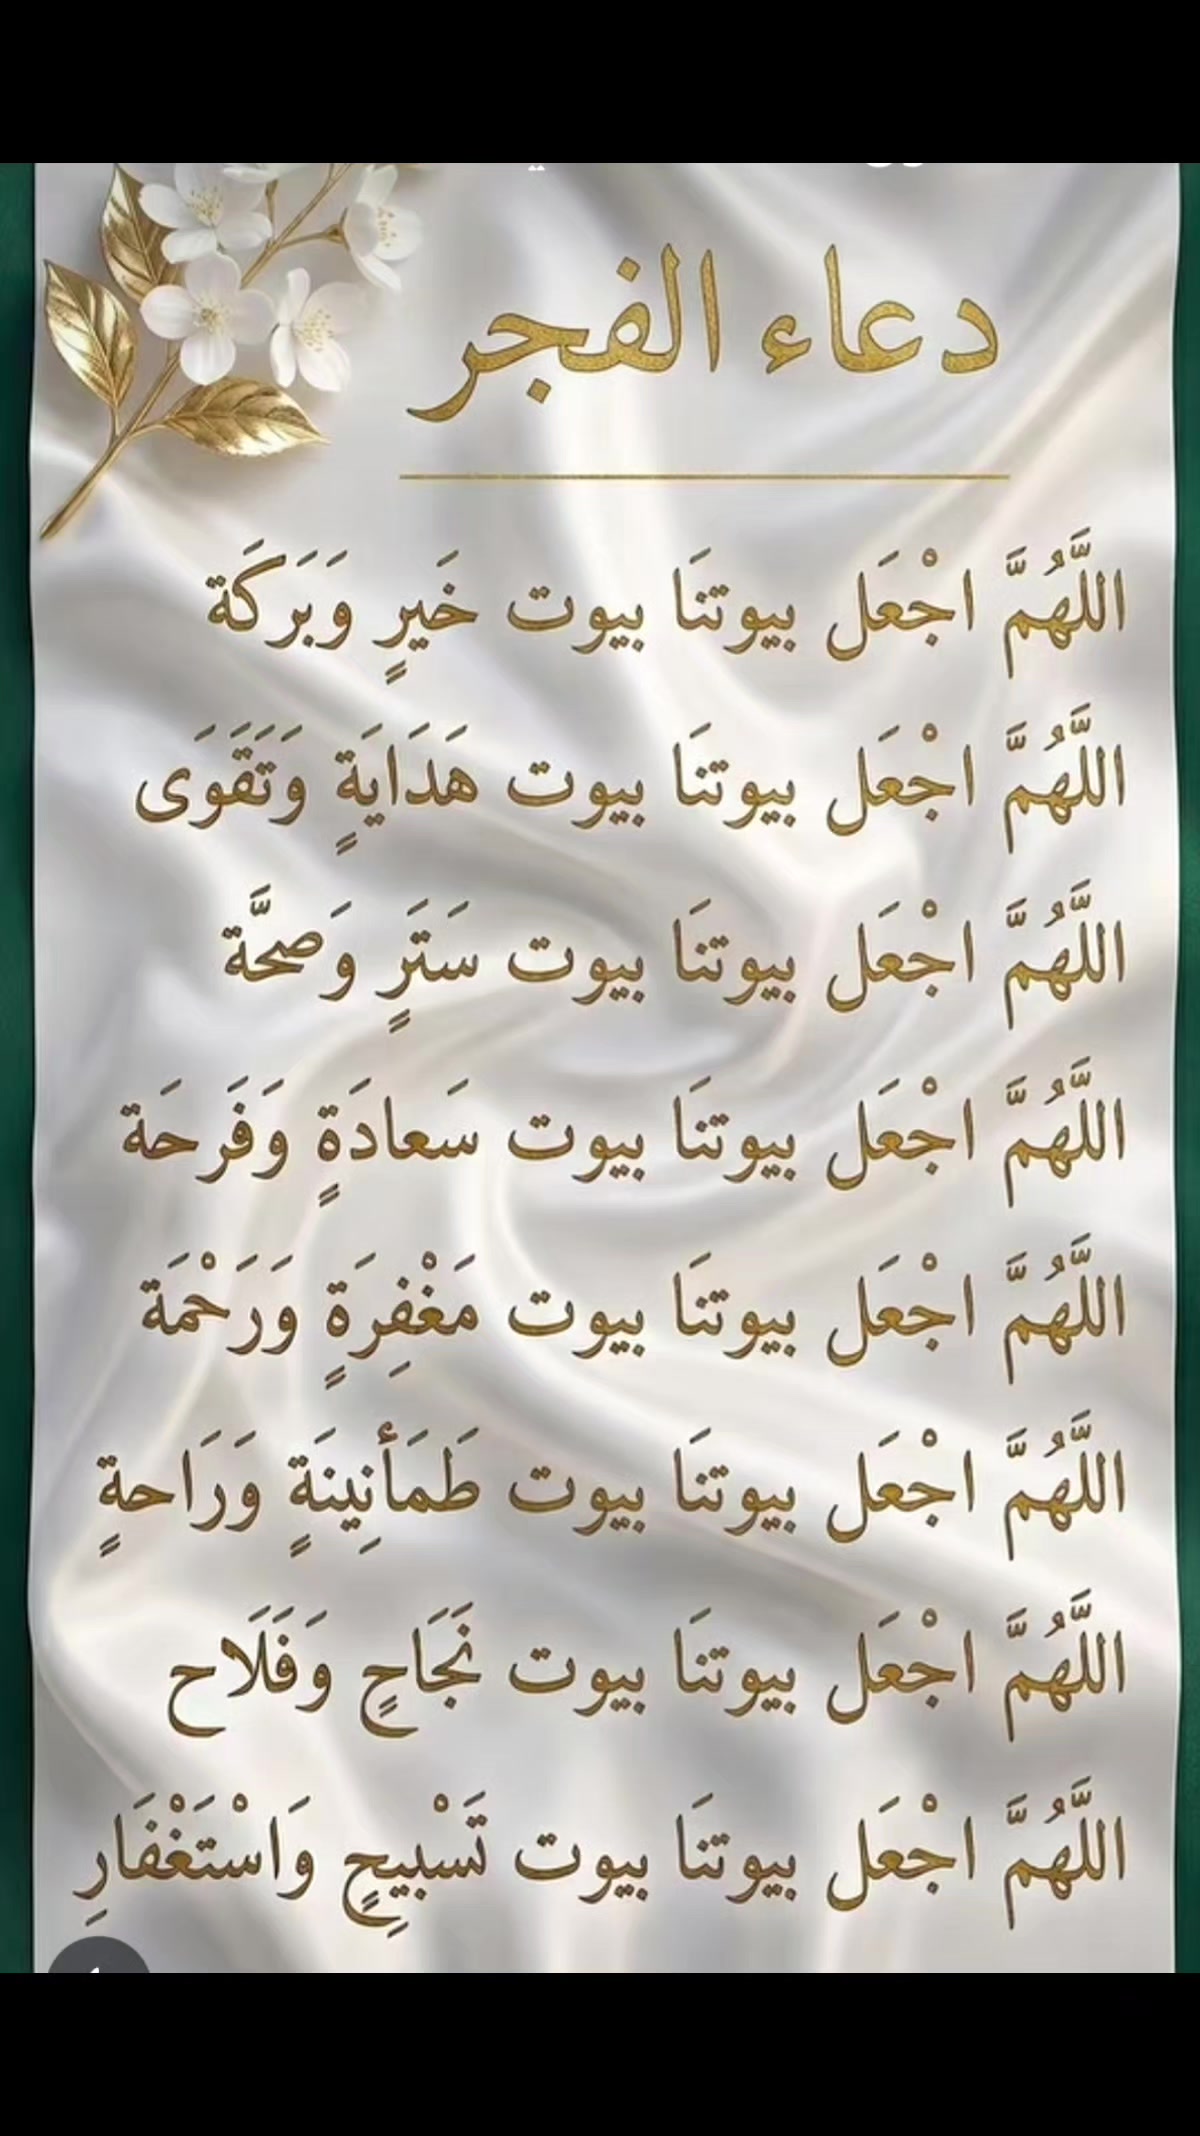 دعاء الفجر
اللَّهُمَّ اجْعَل بيوتنَا بيوت خَيرٍ وَبَركَة
اللَّهُمَّ اجْعَل بيوتنَا بيوت هَدَايَةٍ وَتَقَوَى
اللَّهُمَّ اجْعَل بيوتنَا بيوت سَتَرٍ وَصحَّة
اللَّهُمَّ اجْعَل بيوتنَا بيوت سَعادَةٍ وَفَرحَة
اللَّهُمَّ اجْعَل بيوتنَا بيوت مَغْفِرَةٍ وَرَحْمَة
اللَّهُمَّ اجْعَل بيوتنَا بيوت طَمَأنِينَةٍ وَرَاحةٍ
اللَّهُمَّ اجْعَل بيوتنَا بيوت نَجَاحٍ وَفَلَاح
اللَّهُمَّ اجْعَل بيوتنَا بيوت تَسْبيِحٍ وَاسْتَغْفَارِ